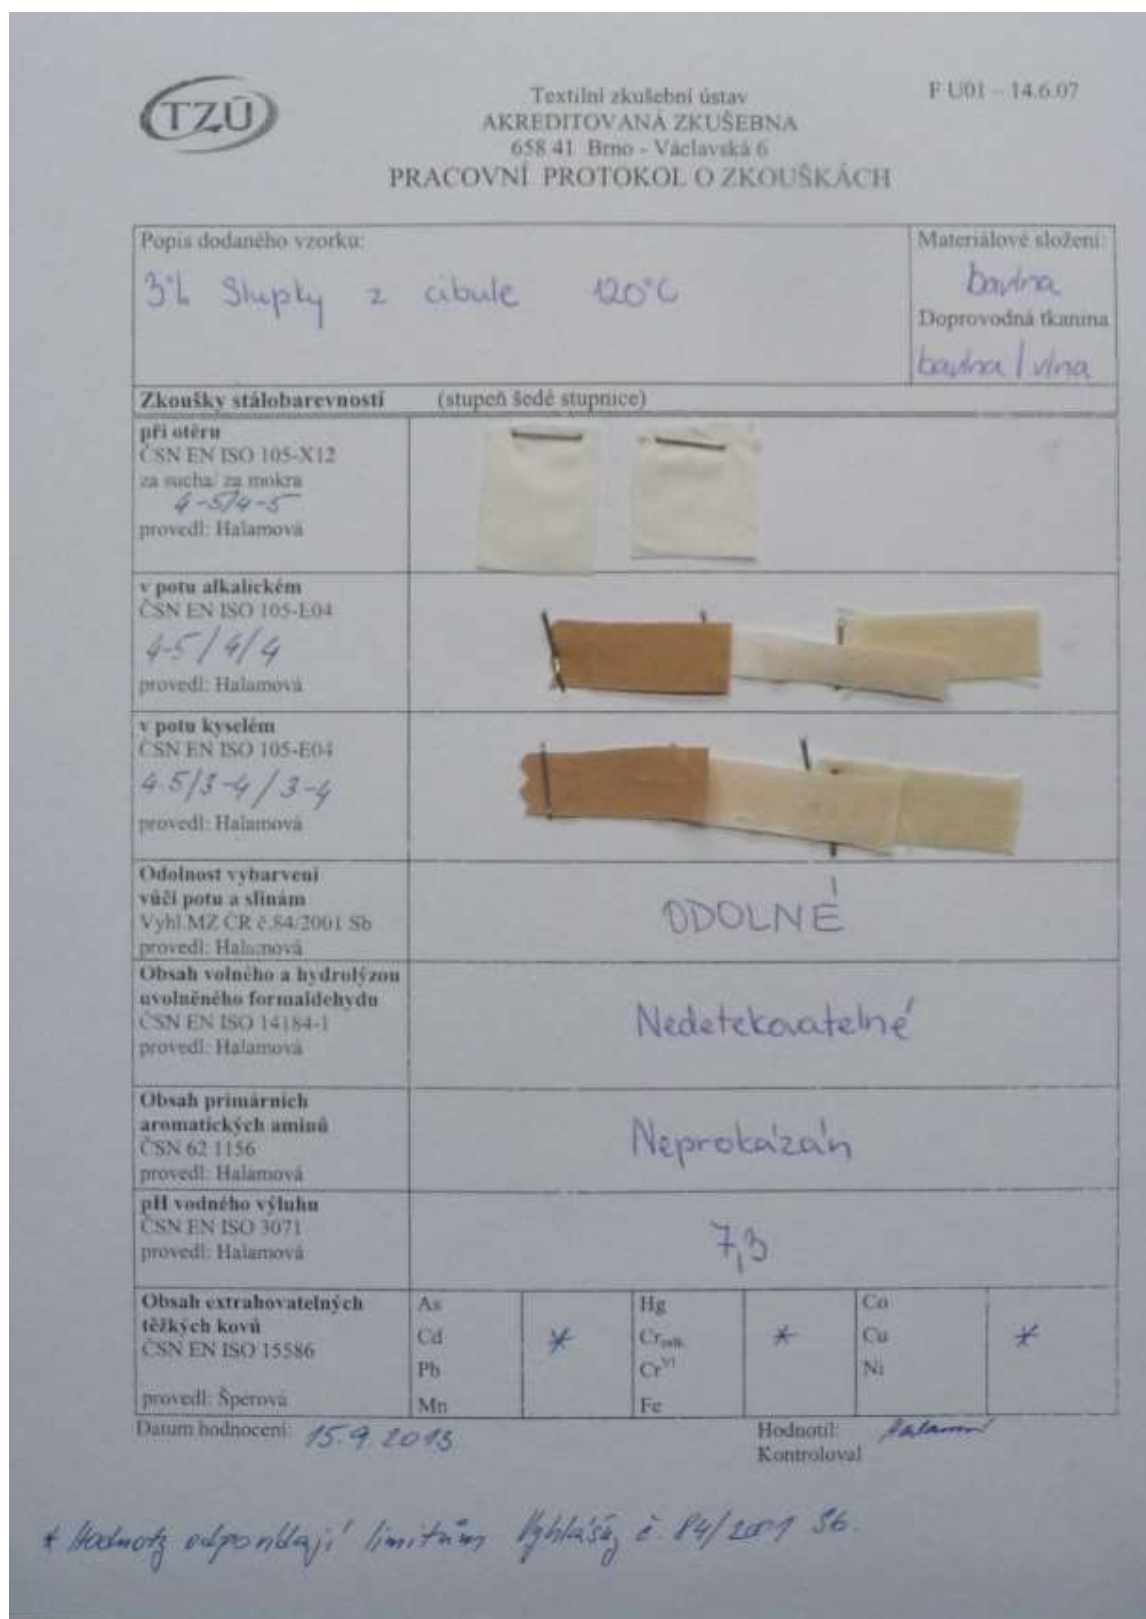 TZÚ
Textilní zkušební ústav
AKREDITOVANÁ ZKUŠEBNA
658 41 Brno - Václavská 6
PRACOVNÍ PROTOKOL O ZKOUŠKÁCH
F U01 – 14.6.07
Popis dodaného vzorku:
3% Slupky z cibule 120°C
Materiálové složení:
bavlna
Doprovodná tkanina
bavlna / vlna
Zkoušky stálobarevností (stupeň šedé stupnice)
při otěru
ČSN EN ISO 105-X12
za sucha/ za mokra
4-5/4-5
provedl: Halamová
v potu alkalickém
ČSN EN ISO 105-E04
4-5/4/4
provedl: Halamová
v potu kyselém
ČSN EN ISO 105-E04
4-5/3-4/3-4
provedl: Halamová
Odolnost vybarvení
vůči potu a slinám
Vyhl.MZ ČR č.84/2001 Sb
provedl: Halamová
ODOLNÉ
Obsah volného a hydrolýzou
uvolněného formaldehydu
ČSN EN ISO 14184-1
provedl: Halamová
Nedetekovatelné
Obsah primárních
aromatických aminů
ČSN 62 1156
provedl: Halamová
Neprokázán
pH vodného výluhu
ČSN EN ISO 3071
provedl: Halamová
7,3
Obsah extrahovatelných
těžkých kovů
ČSN EN ISO 15586
provedl: Šperová
As
Cd *
Pb
Mn
Hg
Cr celk. *
Cr VI
Fe
Co
Cu *
Ni
Datum hodnocení: 15.9.2013
Hodnotil: Halamová
Kontroloval
* Hodnoty odpovídají limitům Vyhlášky č. 84/2001 Sb.